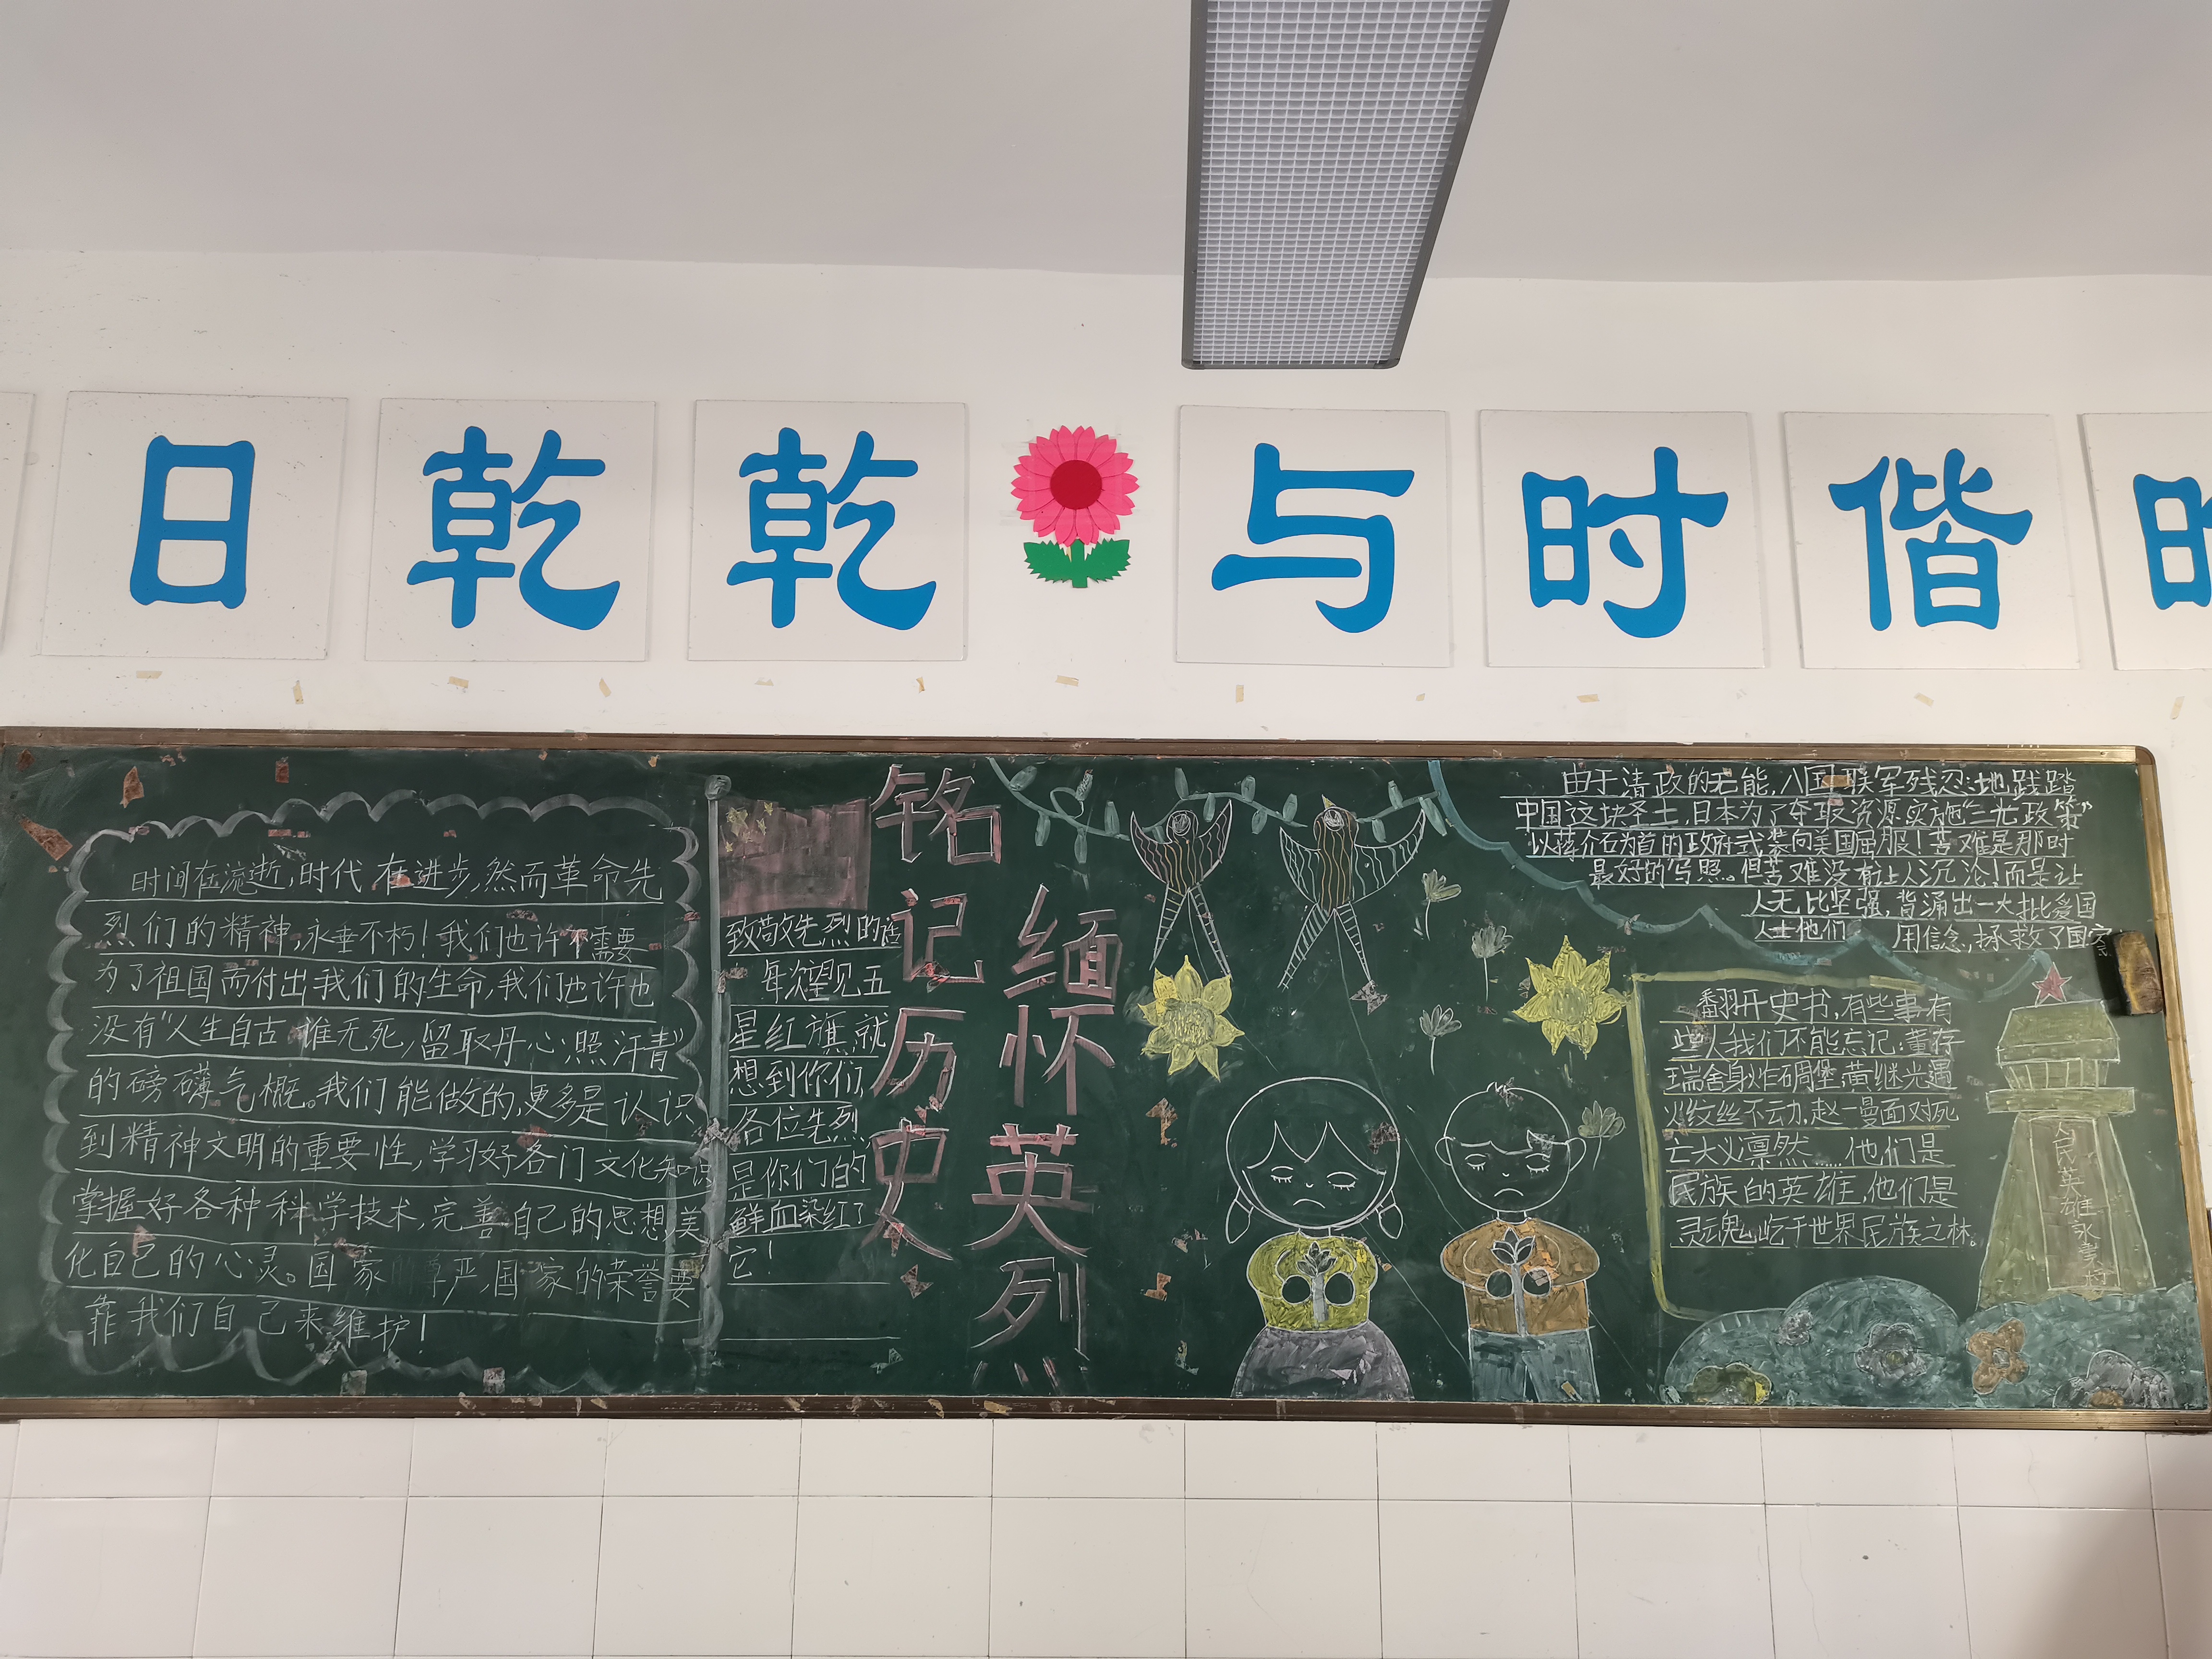 日乾乾 与时偕
时间在流逝,时代在进步,然而革命先
烈们的精神,永垂不朽!我们也许不需要
为了祖国而付出我们的生命,我们也许也
没有“人生自古谁无死,留取丹心照汗青”
的磅礴气概。我们能做的,更多是认识
到精神文明的重要性,学习好各门文化知识
掌握好各种科学技术,完善自己的思想,美
化自己的心灵。国家的尊严,国家的荣誉要
靠我们自己来维护!
致敬先烈的话
每次望见五
星红旗,就
想到你们,
各位先烈
是你们的
鲜血染红了
它!
铭记历史
缅怀英烈
由于清政的无能,八国联军残忍地践踏
中国这块圣土,日本为了夺取资源实施“三光政策”
以蒋介石为首的政府武装向美国屈服!苦难是那时
最好的写照。但苦难没有让人沉沦!而是让
人无比坚强,背涌出一大批爱国
人士他们 用信念,拯救了国家
翻开史书,有些事有
些人我们不能忘记:董存
瑞舍身炸碉堡,黄继光遇
火纹丝不动,赵一曼面对死
亡大义凛然……他们是
民族的英雄,他们是
灵魂屹于世界民族之林。
人民英雄永垂朽